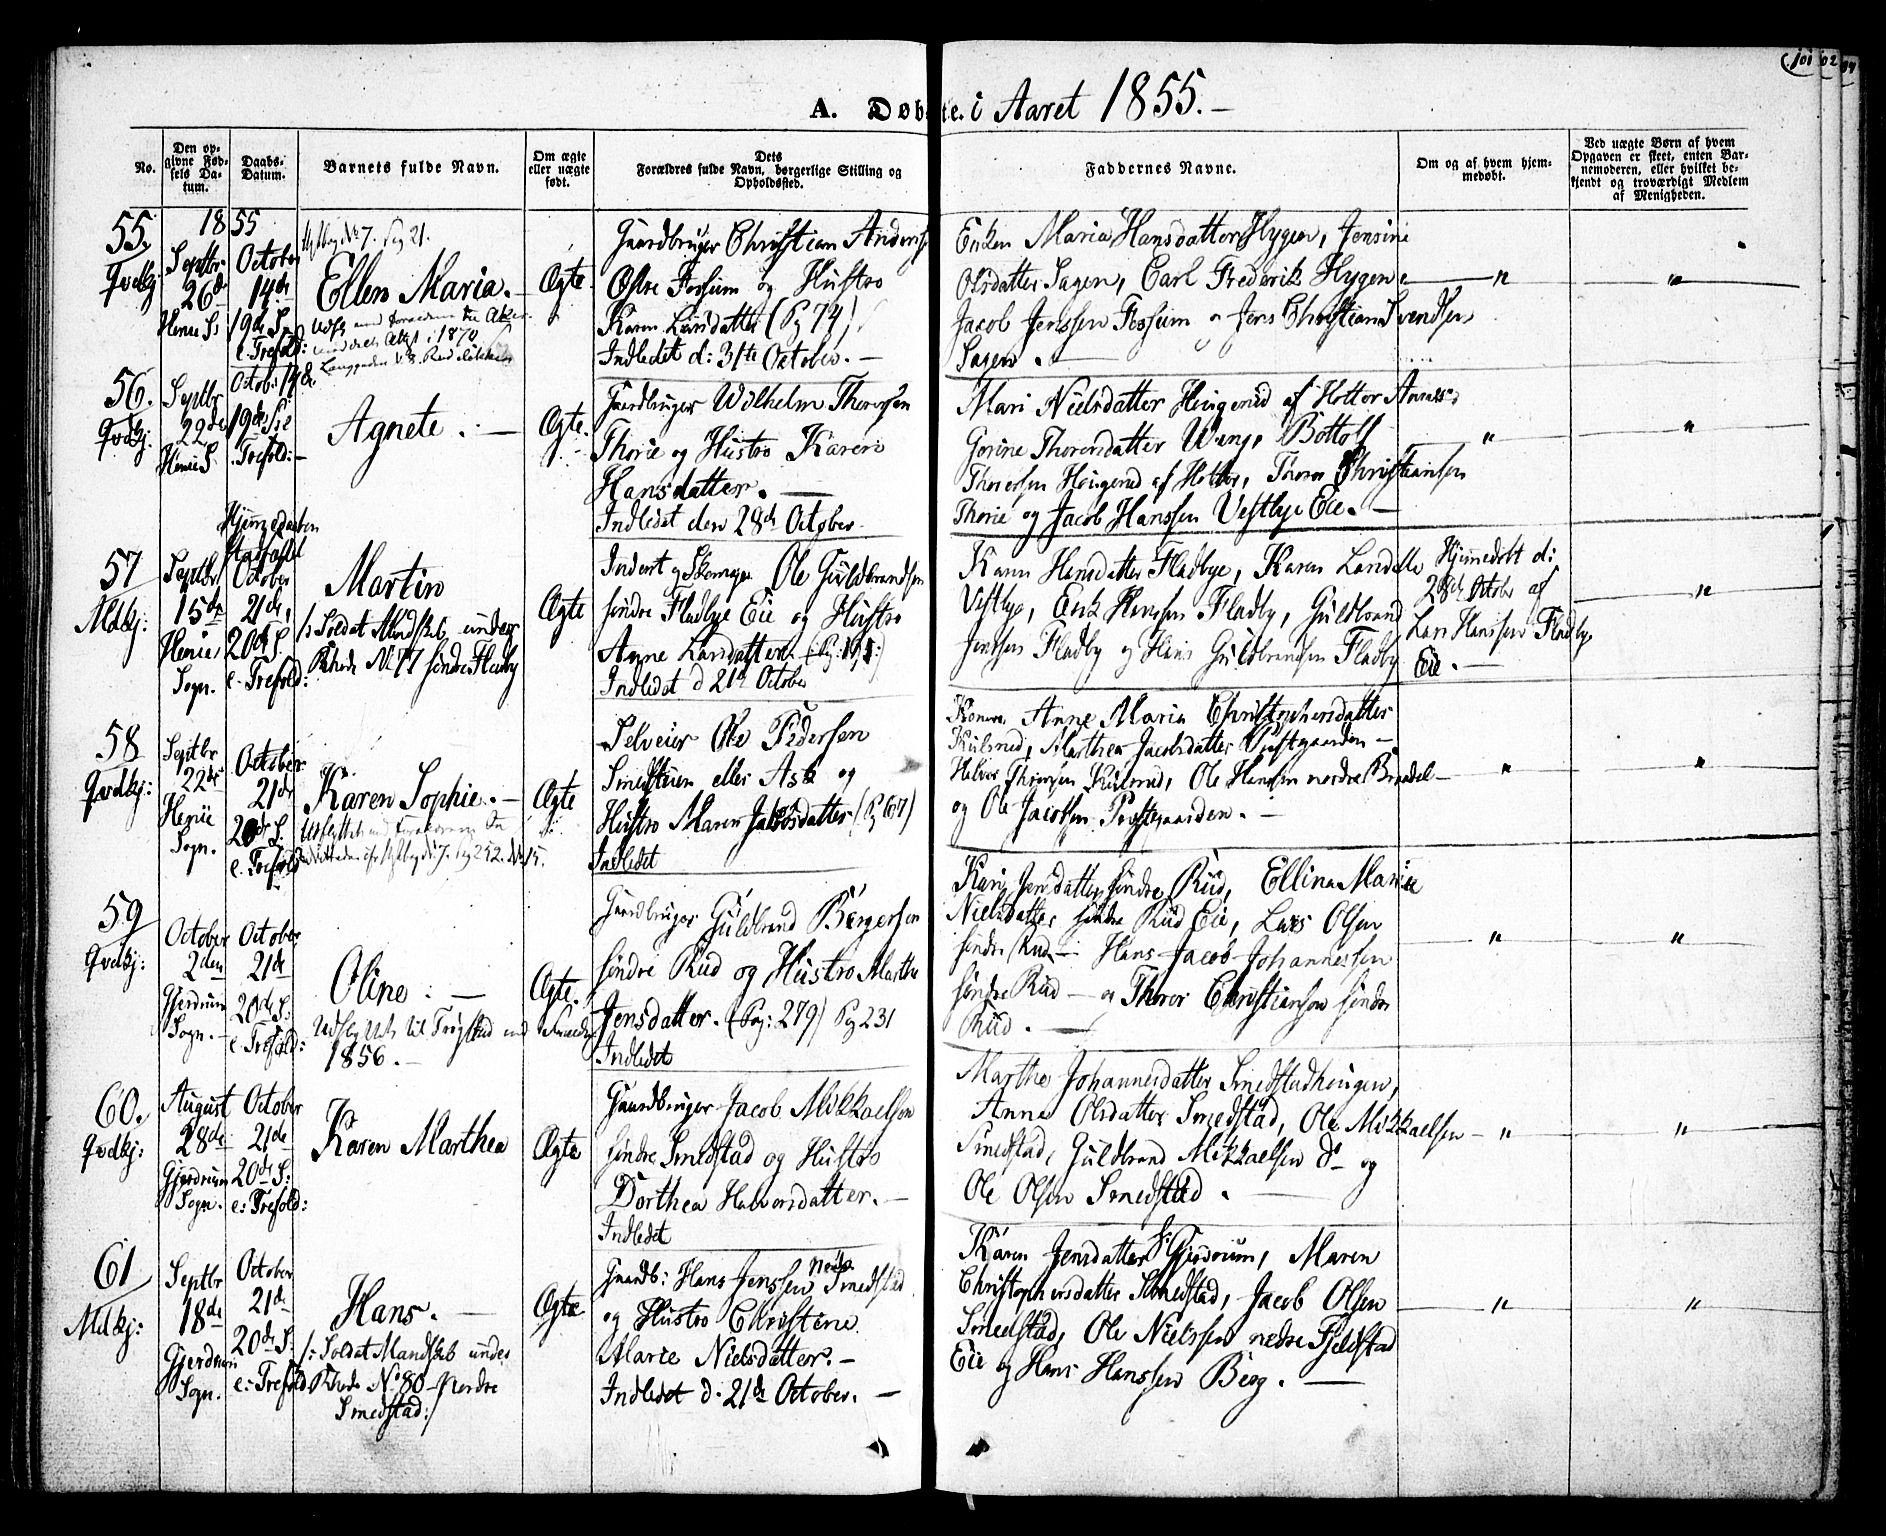 101
A. Døbte. i Aaret 1855.—
No.
Den op-
givne Fød-
sels Da-
tum.
Daabs-
Datum.
Barnets fulde Navn.
Om ægte
eller uægte
født.
Dets
Forældres fulde Navn, borgerlige Stilling og
Opholdssted.
Faddernes Navne.
Om og af hvem hjem-
medøbt.
Ved uægte Børn af hvem
Opgaven er skeet, enten Bar-
nemoderen, eller hvilket be-
kjendt og troværdigt Medlem
af Menigheden.
55.
Qvdkj:
1855
Septbr
26de
October
14de
19de S.
e. Trefold:
Ellen Maria.—
Ægte.
Gaardbruger Christian Anders
Østre Fossum og Hustro
Karen Larsdatter (Pg 74)
Indledet d: 31te October.—
Enken Maria Hansdatter Hygen, Jensine
Olsdatter Sagen, Carl Frederik Hygen
Jacob Jenssen Fossum og Jens Christian Svendsen
Sagen.—
"
"
56.
Qvdkj:
Septbr
22de
Octob: 14de
19de S. e
Trefold:—
Agnete.—
Ægte.
Gaardbruger Wilhelm Thorersen
Thorie og Hustro Karen
Hansdatter.—
Indledet den 28de October.
Mari Nielsdatter Haugerud af Hottor
Gorine Thorersdatter Bottolf
Thorersen Haugerud af Hottor, Thorer Christiansen
Thorie og Jacob Hanssen Vestbye Eie.—
"
"
57
Mdkj:
Septbr
15de
Sogn.
October
21de,
20de S.
e. Trefold:
Martin
/: Soldat Mandskab under
Rhode No 77 søndre Fladby
Ægte
Inderst og Skomager Ole Guldbrandsen
søndre Fladbye Eie og Hustro
Anne Larsdatter.
Indledet d 21de October
Karen Hansdatter Fladbye, Karen
Vestbye, Erik Hanssen Fladby, Guldbrand
Jenssen Fladby og Hans Guldbrandsen Fladby
Hjemmedøbt d:
Lars Hanssen Fladby
Eie.—
"
58
Qvdkj:
Septbr
22de
Sogn.
October
21de
20de S.
e. Trefold
Karen Sophie.—
Ægte
Selveier Ole Pedersen
Smedstuen eller Ask og
Hustro Maren Jacobsdatter (Pg 67)
Indledet
Konen Anne Maria Christophersdatter
Kulsrud, Marthea Jacobsdatter Præstgaarden—
Halvor Thoresen Kulsrud, Ole Hansen nordre
og Ole Jacobsen Præstegaarden.—
"
"
59
Qvdkj:
October
2den
Gjerdrum
Sogn.—
October
21de
20de S:
e. Trefold:
Oline.—
Udflyttet til Trøgstad med
1856.—
Ægte.
Gaardbruger Guldbrand Børgersen
søndre Rud og Hustro Marthe
Jensdatter. (Pag: 279) Pg 231
Indledet
Kari Jensdatter søndre Rud, Ellina Maria
Nielsdatter søndre Rud Eie, Lars Olsen
søndre Rud— Hans Jacob Johannessen
søndre Rud— og Thoror Christiansen søndre
Rud.—
"
"
60.
Qvdkj:
August
28de
Gjerdrum
Sogn.
October
21de
20de S:
e: Trefold:
Karen Marthea
Ægte
Gaardbruger Jacob Mikkaelsen
søndre Smedstad og Hustro
Dorthea Halvorsdatter.—
Indledet
Marthe Johannesdatter Smedstadhougen,
Anne Olsdatter Smedstad, Ole Mikkaelsen
Smedstad, Guldbrand Mikkaelsen do og
Ole Olsen Smedstad.
"
"
61
Mdkj:
Septbr
18de
Gjerdrum
Sogn.
October
21de
20de S:
e: Trefold
Hans.—
/: Soldat Mandskab under
Rhode No 80 Nordre
Smedstad:/
Ægte
Gaardb: Hans Jenssen Nordre Smedstad
og Hustro Christine
Marie Nielsdatter.—
Indledet d. 21de October.—
Karen Jensdatter Gjerdrum, Maren
Christophersdatter Smedstad, Jacob Olsen
Smedstad, Ole Nielssen nedre Fjeldstad
Eie og Hans Hanssen Berg.—
"
"